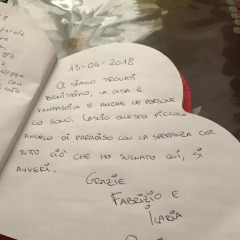 13-04-2018
CI SIAMO TROVATI
BENISSIMO, LA CASA È
FANTASTICA E ANCHE LE PERSONE
LO SONO. LASCIO QUESTO PICCOLO
ANGOLO DI PARADISO CON LA SPERANZA CHE
TUTTO CIÒ CHE HO SOGNATO QUI, SI
AVVERI.
GRAZIE
FABRIZIO E
ILARIA